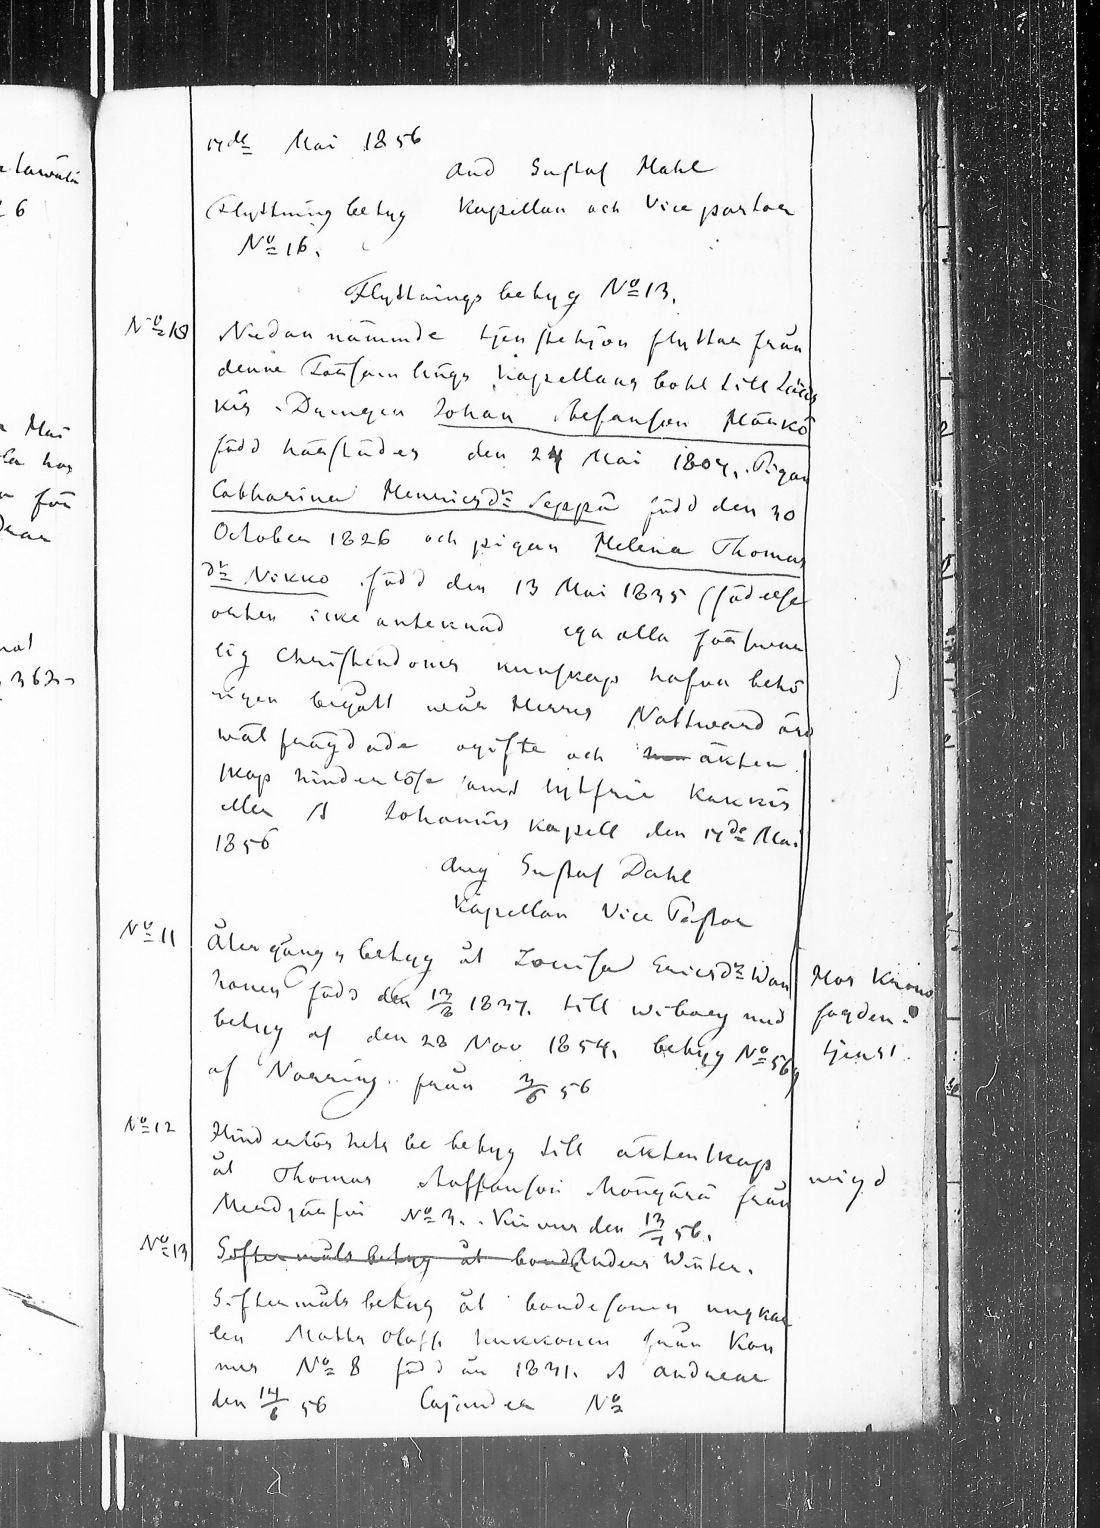 17de Mai 1856
And Gustaf Mahl
Flyttning betyg Kapellan och Vice pastor
No 16.
Flyttnings betyg No 13.
No 18 Nedan nämnde tjenstehjon flyttar från
denne Församlings Kapellans bohl till
kis. Drengen Johan Stefansson Märkö
född härstädes den 24 Mai 1804. Pigan
Catharina Henricsdr Seppä född den 30
October 1826 och pigan Helena Thomas
dr Nikko född den 13 Mai 1835 (födelse
orten icke anteknad ega alla förswar
lig Christendoms kunskap hafva behö
rigen begått wår Herres Nattward äro
wälfrägdade ogifte och till äkten
skap hinderlöse samt lytfrie
eller St Johannis kapell den 17de Mai
1856
Aug Gustaf Dahl
Kapellan Vice Pastor
No 11 Återgångs betyg åt Lovisa Ericsdr Wan
honen född den 13/8 1837. till Wiborg med
betyg af den 28 Nov 1854. betyg No 569
af Norring från 3/6 56
Hos Krono
fogden i
tjenst.
No 12 Hinderlös hets be betyg till äktenskap
åt Thomas Staffansson från
No 3. den 13/7 56.
wigd
No 13 Giftermåls betyg åt bond Anders Winter.
Giftermåls betyg åt bondesonen ungkar
len Matts Olofs. Hukkonen från Kon
nus No 8 född år 1831. St Andreae
den 14/6 56 Cajander No 2